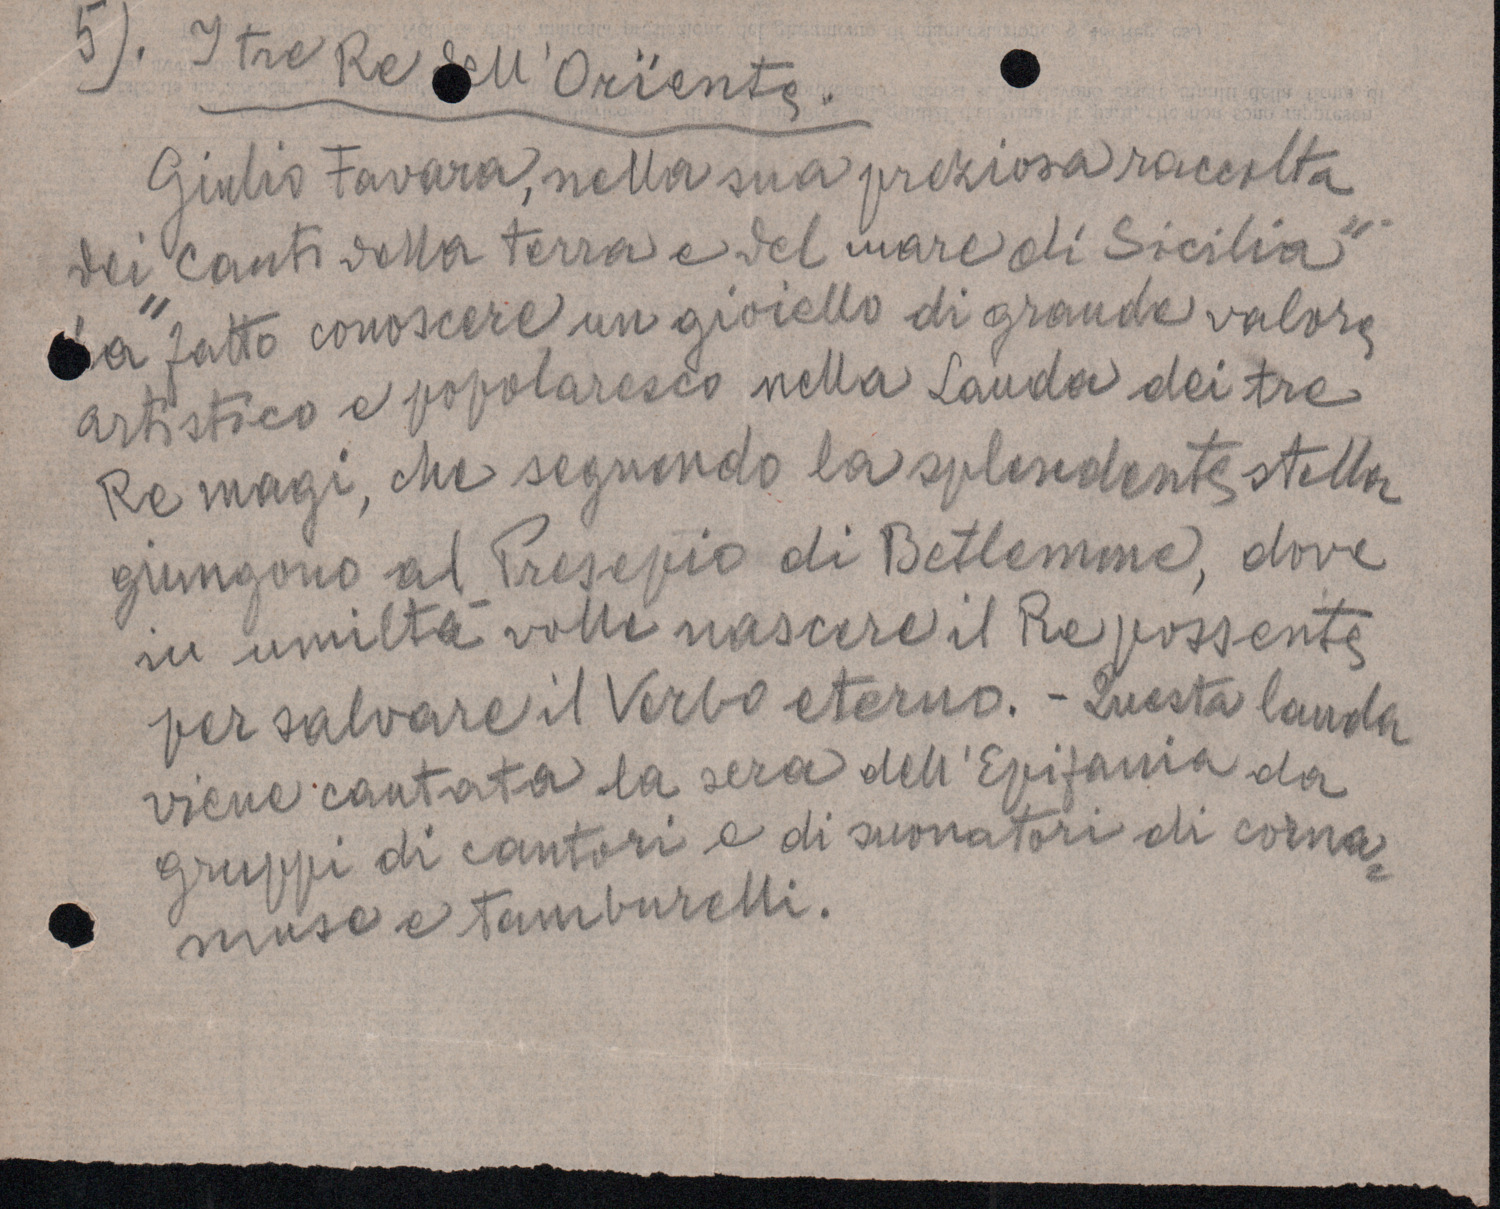 5). I tre Re dell'Oriente.
Giulio Favara, nella sua preziosa raccolta
dei "Canti della terra e del mare di Sicilia"
ha fatto conoscere un gioiello di grande valore
artistico e popolaresco nella Lauda dei tre
Re magi, che seguendo la splendente stella
giungono al Presepio di Betlemme, dove
in umiltà volle nascere il Re possente
per salvare il Verbo eterno. - Questa lauda
viene cantata la sera dell'Epifania da
gruppi di cantori e di suonatori di corna=
muse e tamburelli.